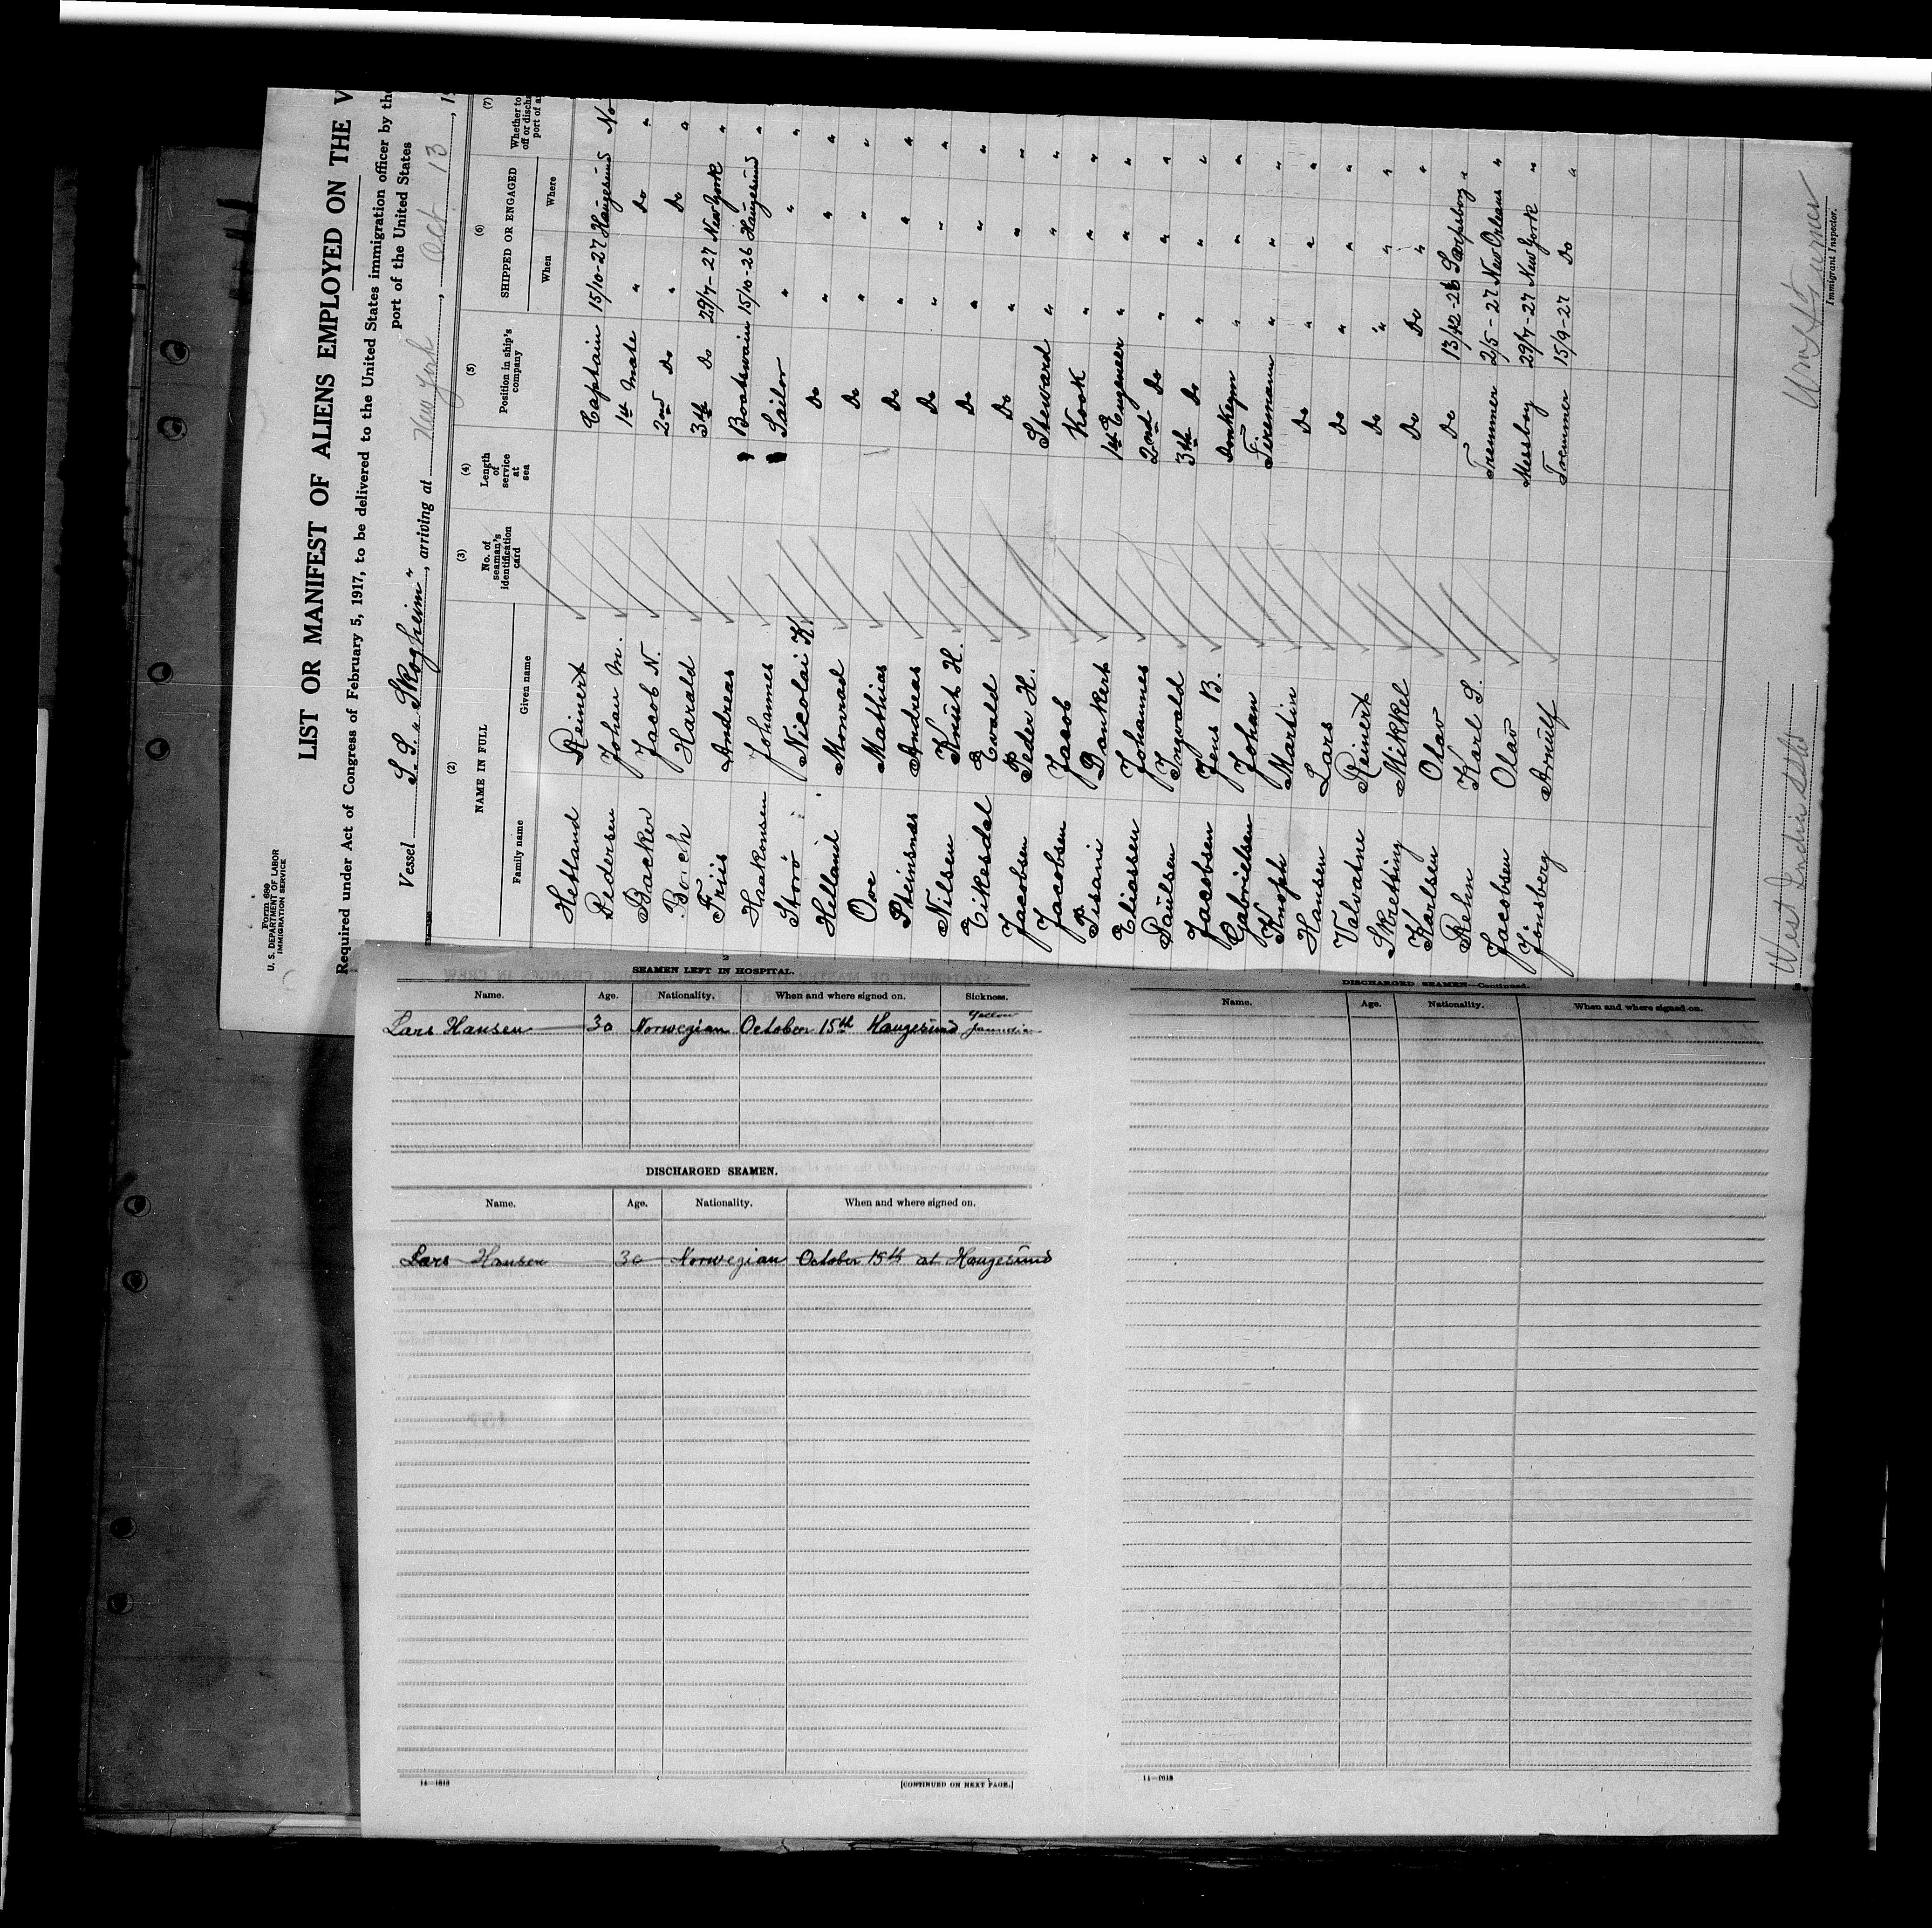 Form 689
U. S. DEPARTMENT OF LABOR
IMMIGRATION SERVICE
LIST OR MANIFEST OF ALIENS EMPLOYED ON THE V
Required under Act of Congress of February 5, 1917, to be delivered to the United States immigration officer by the
port of the United States
Vessel S.S. "Skogheim", arriving at New York, Oct. 13, 1
(2) (3) (4) (5) (6) (7)
NAME IN FULL No. of seaman's identification card Length of service at sea Position in ship's company SHIPPED OR ENGAGED Whether to
off or disch
port of a
Family name Given name When Where
Hetland Reinert Captain 15/10-27 Haugesund No
Pedersen Johan M. 1st Mate " Do "
Backer Jacob N. 2nd Do " Do "
Borch Harald 3th Do 29/7-27 New York "
Friis Andreas Boatswain 15/10-26 Haugesund "
Haakonsen Johannes Sailor " " "
Storö Nicolai K. Do " " "
Helland Monrad Do " " "
Ove Mathias Do " " "
Steinsnes Andreas Do " " "
Nilsen Knut H. Do " " "
Eikesdal Ewald Do " " "
Jacobsen Peder H. Steward " " "
Jacobsen Jacob Kook " " "
Pisani Dankert 1st Engeneer " " "
Eliassen Johannes 2nd Do " " "
Paulsen Ingvald 3th Do " " "
Jacobsen Jens B. Donkeym " " "
Gabrielsen Johan Firemann " " "
Knoph Martin Do " " "
Hansen Lars Do " " "
Valvatne Reinert Do " " "
Skretting Mikkel Do Do " "
Karlsen Olav Do 13/12-26 Sarpsborg "
Rehn Karl S. Tremmer 2/5-27 New Orleans "
Jacobsen Olav Messboy 29/7-27 New York "
Jönsberg Arnulf Tremmer 15/9-27 Do "
West Indies
Immigrant Inspector.
2
SEAMEN LEFT IN HOSPITAL.
Name. Age. Nationality. When and where signed on. Sickness.
Lars Hansen 30 Norwegian October 15th Haugesund Yellow
DISCHARGED SEAMEN.
Name. Age. Nationality. When and where signed on.
Lars Hansen 30 Norwegian October 15th at Haugesund
14—1818
[CONTINUED ON NEXT PAGE.]
DISCHARGED SEAMEN—Continued.
Name. Age. Nationality. When and where signed on.